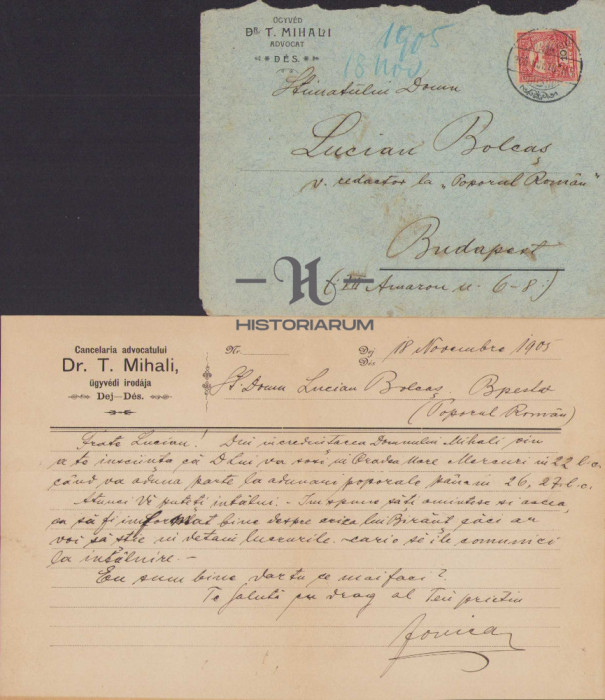 ÜGYVÉD
Dr. T. MIHALI
ADVOCAT
DÉS.
1905
18 Nov
10
Stimatului Domn
Lucian Bolcaș
v. redactor la „Poporul Român”
Budapest
Amazon u. 6-8.)
H
HISTORIARUM
Cancelaria advocatului
Dr. T. Mihali,
ügyvédi irodája
Dej—Dés.
Nr.
Dej
Dés
18 Novembre 1905
St. Domn Lucian Bolcaș. Bpesta
(Poporul Român)
Frate Lucian! Din increditarea Domnului Mihali vin
a te insciința că DLui va sosi in Oradea Mare Mercuri in 22 l.c.
când va aduna parte la adunari poporale până in 26, 27 l.c.
Atunci Vi puteti intâlni. - Imi spune să-ti amintesc si aceea,
ca să fi informat bine despre acica lui Birăuț căci ar
voi să stie in detaiu lucrurile - cari o să ile comunici
la intâlnire. -
Eu sum bine, dar tu ce mai faci?
Te salută cu drag al Teu prietin